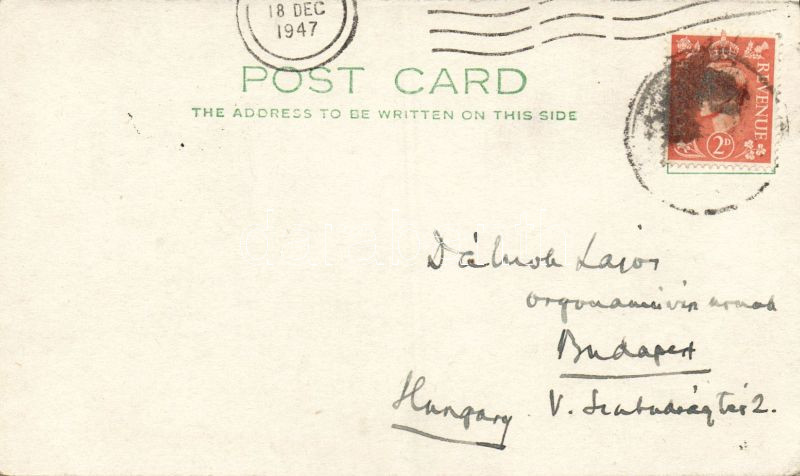 18 DEC
1947
POST CARD
THE ADDRESS TO BE WRITTEN ON THIS SIDE
REVENUE
2D
Dálnok Lajos
orgonaművész urnak
Budapest
Hungary V. Szabadság tér 2.